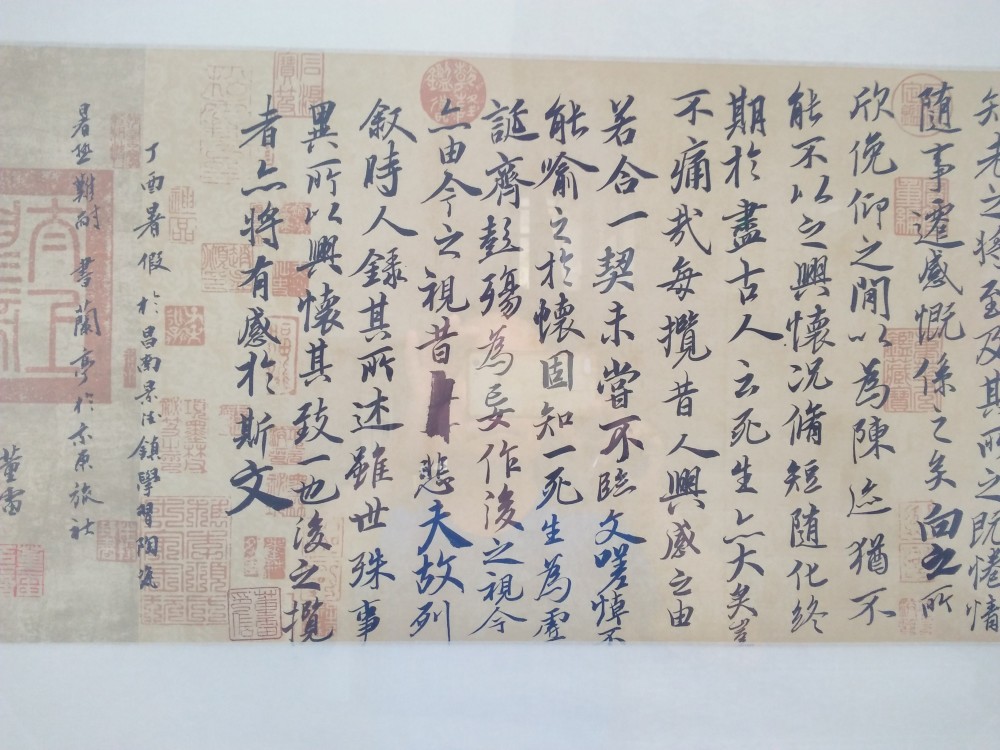 矣老之將至及其所之既惓情
隨事遷感慨係之矣向之所
欣俛仰之間以為陳迹猶不
能不以之興懷况脩短隨化終
期於盡古人云死生亦大矣豈
不痛哉每攬昔人興感之由
若合一契未嘗不臨文嗟悼不
能喻之於懷固知一死生為虛
誕齊彭殤為妄作後之視今
亦由今之視昔悲夫故列
叙時人錄其所述雖世殊事
異所以興懷其致一也後之攬
者亦將有感於斯文
丁酉暑假於昌南景德鎮學習陶瓷
暑熱難耐 書蘭亭於東旅社
董雷